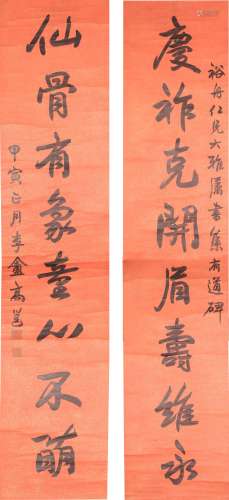 裕舟仁兄大雅屬書集有道碑
慶祚克開眉壽維永
仙骨有象童心不萌
甲寅正月李盦高邕